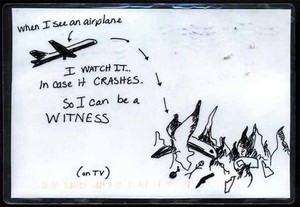 when I see an airplane
I WATCH IT...
In case it CRASHES.
So I can be a
WITNESS
(on TV)